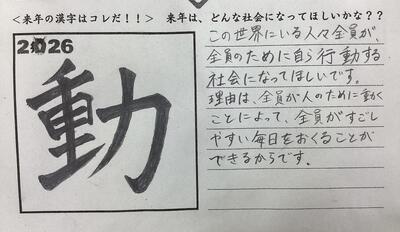 ＜来年の漢字はコレだ！！＞　来年は、どんな社会になってほしいかな？？
2026
動
この世界にいる人々全員が、
全員のために自ら行動する
社会になってほしいです。
理由は、全員が人のために動く
ことによって、全員がすごし
やすい毎日をおくることが
できるからです。